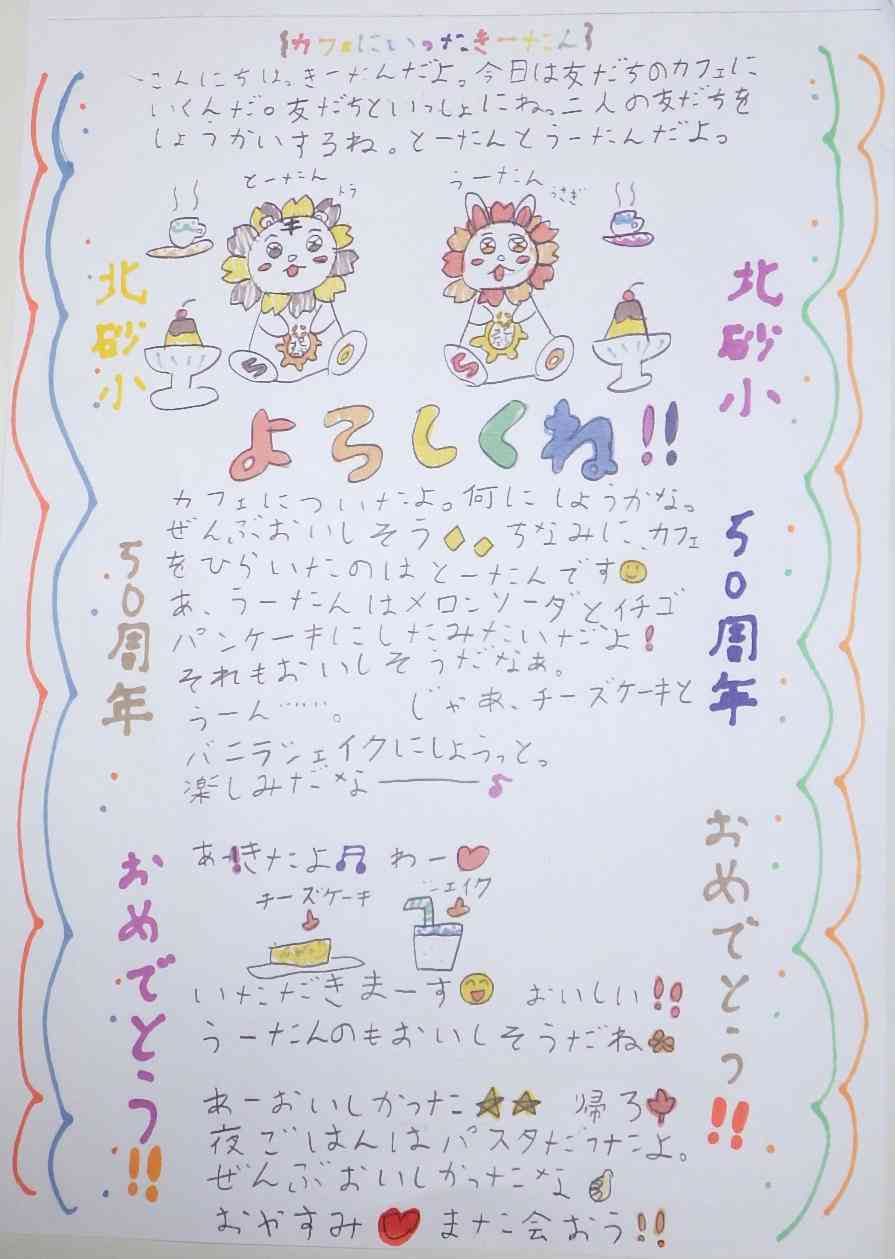 {カフェにいったきーたん}
こんにちは。きーたんだよ。今日は友だちのカフェに
いくんだ。友だちといっしょにね。二人の友だちを
しょうかいするね。とーたんとうーたんだよ。
とーたん
トラ
うーたん
うさぎ
北砂小
北砂小
よろしくね!!
カフェについたよ。何にしようかな。
ぜんぶおいしそう ちなみに、カフェ
をひらいたのはとーたんです
あ、うーたんはメロンソーダとイチゴ
パンケーキにしたみたいだよ!
それもおいしそうだなぁ。
うーん……。 じゃあ、チーズケーキと
バニラシェイクにしようっと。
楽しみだなー♪
50周年
50周年
あ!きたよ♫ わー♥
チーズケーキ
シェイク
いただきまーす おいしい!!
うーたんのもおいしそうだね
あーおいしかった★★ 帰ろ
夜ごはんはパスタだったよ。
ぜんぶおいしかったな
おやすみ♥また会おう!!
おめでとう!!
おめでとう!!